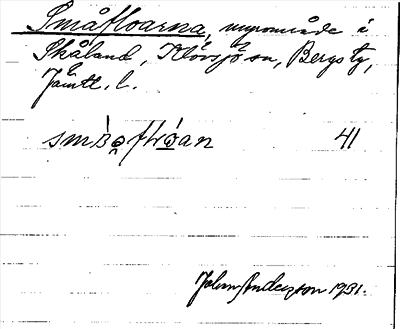 Småfloarna, myrområde i
Skåland, Klövsjö sn, Bergs tg,
Jämtl. l.
41
John Anderzon 1931.